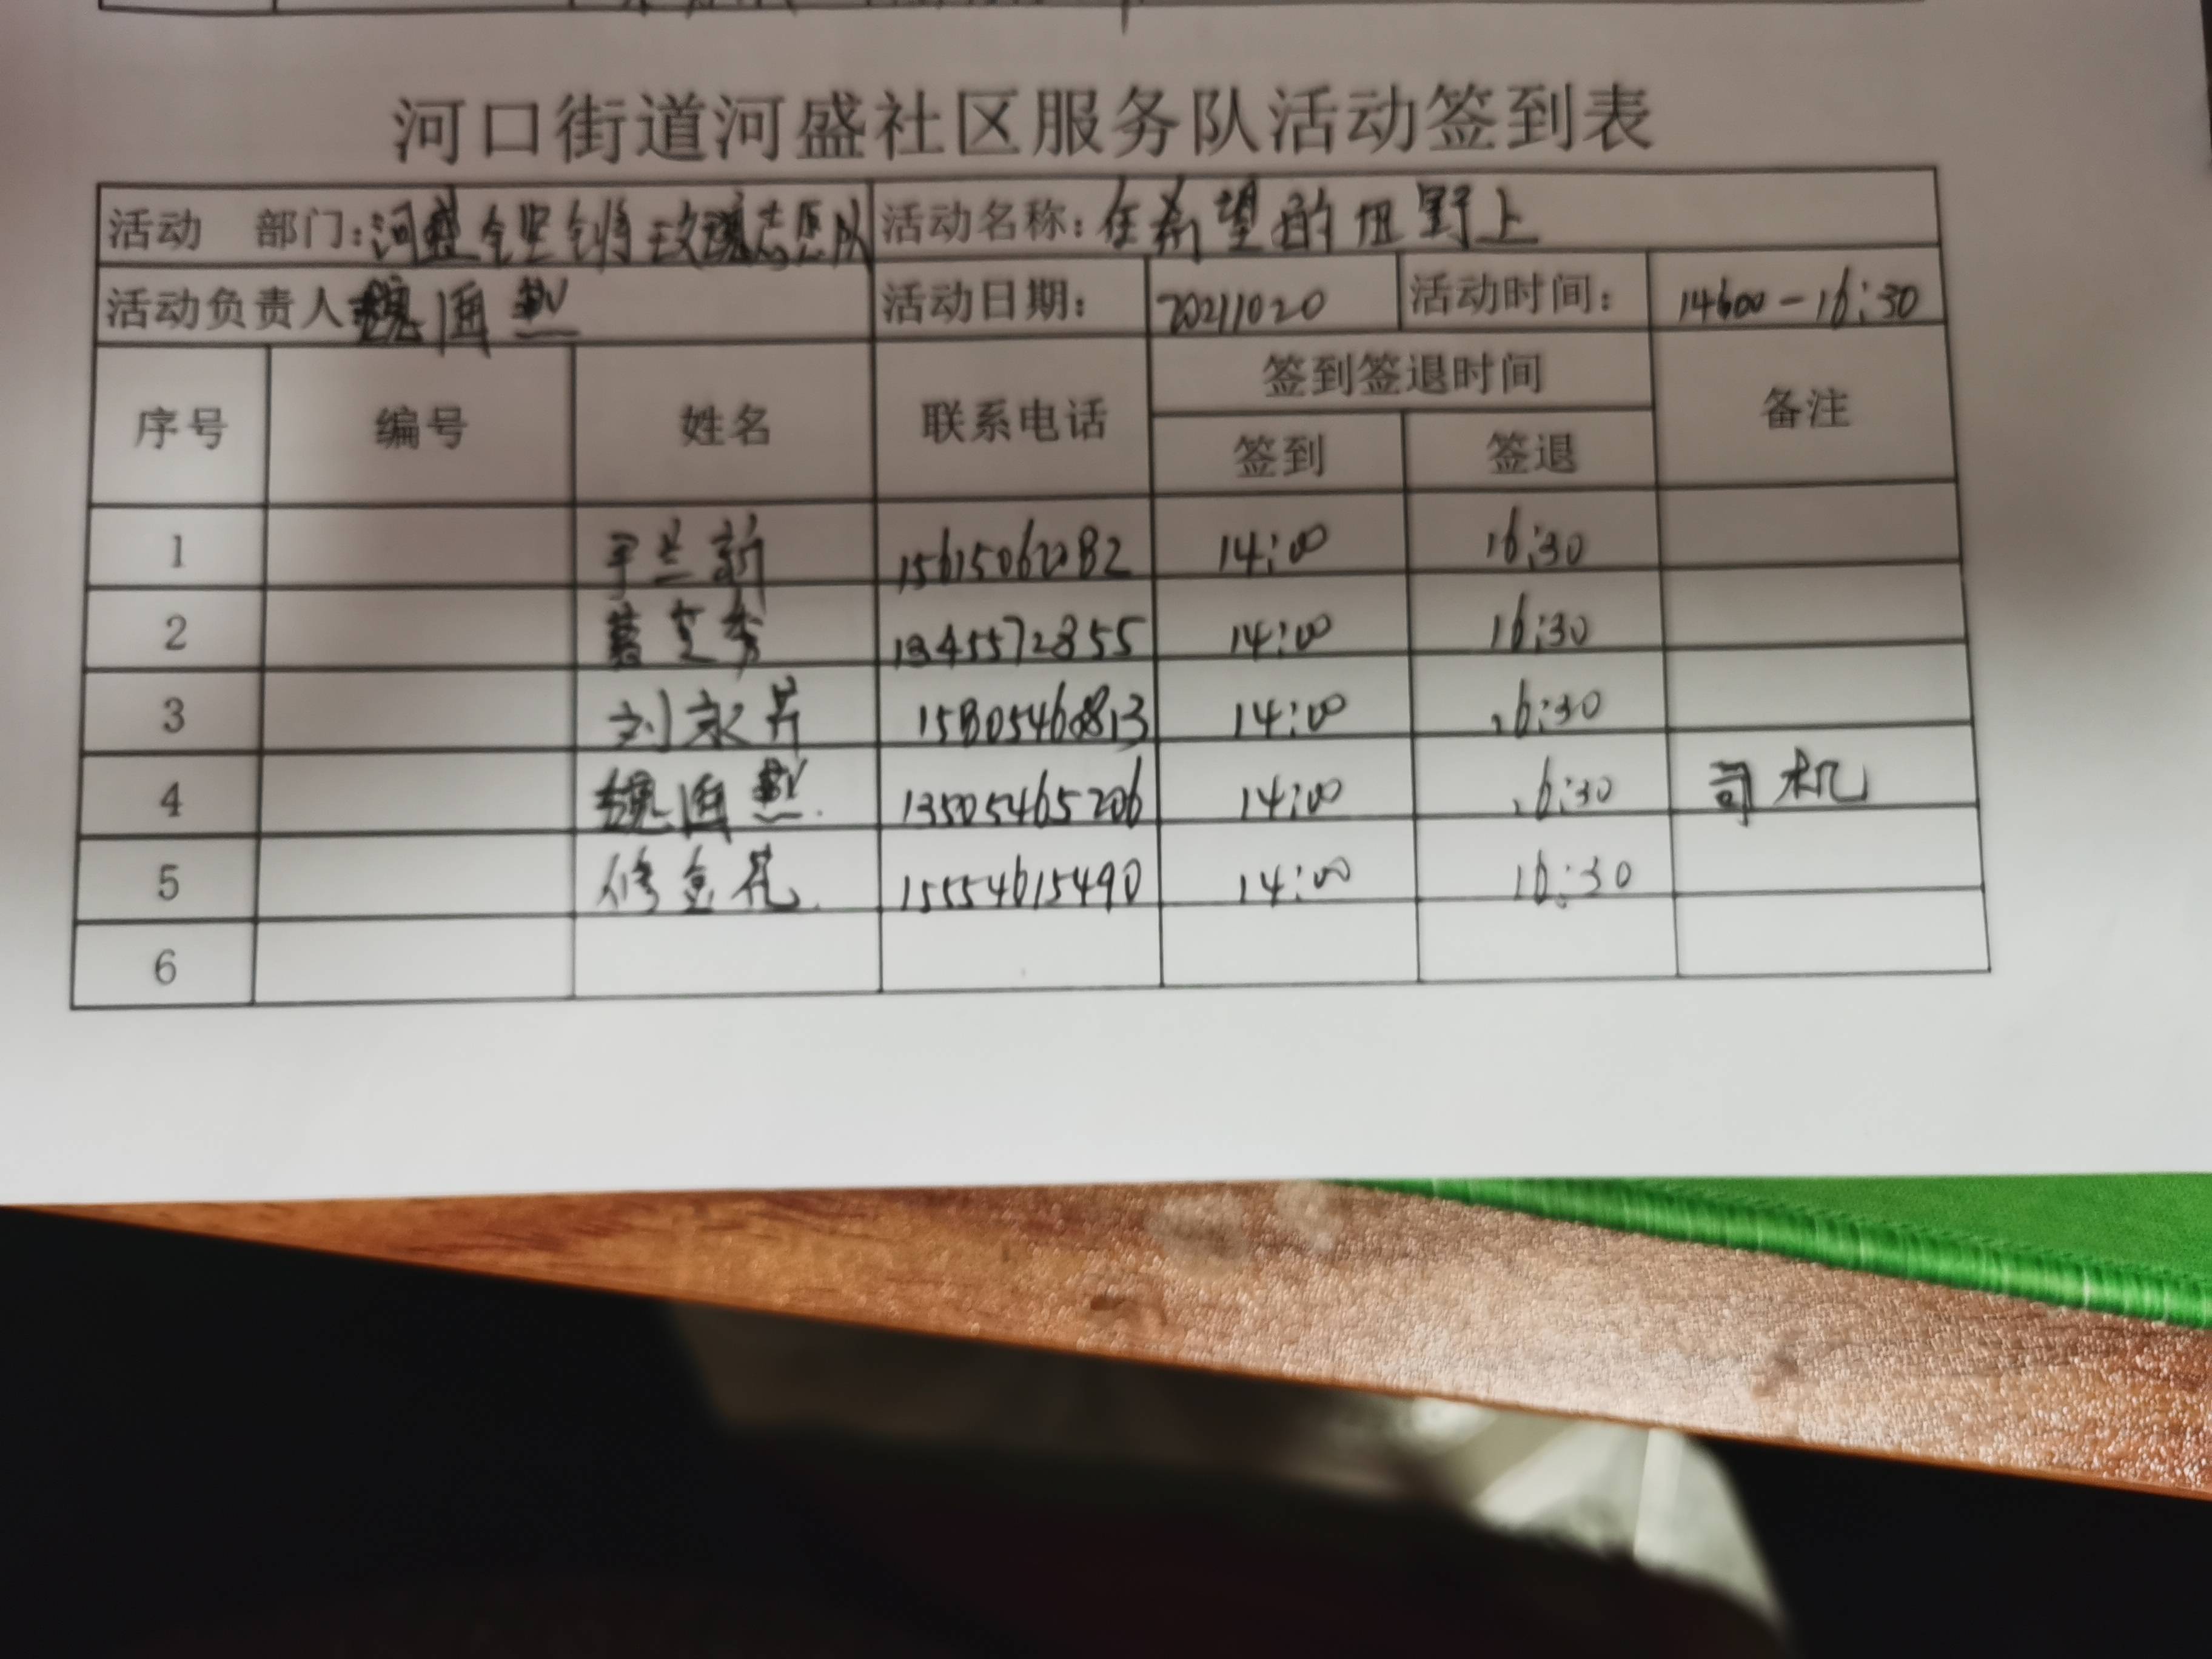 河口街道河盛社区服务队活动签到表
活动 部门:河盛铿锵玫瑰志愿队 活动名称:在希望的田野上
活动负责人 魏 活动日期: 20211020 活动时间: 14:00-16:30
序号 编号 姓名 联系电话 签到签退时间 备注
签到 签退
1 兰新 15615062082 14:00 16:30
2 秀 1345572855 14:00 16:30
3 刘永芹 15805460813 14:00 16:30
4 魏 13505465206 14:00 16:30 司机
5 修金花 15554615490 14:00 16:30
6